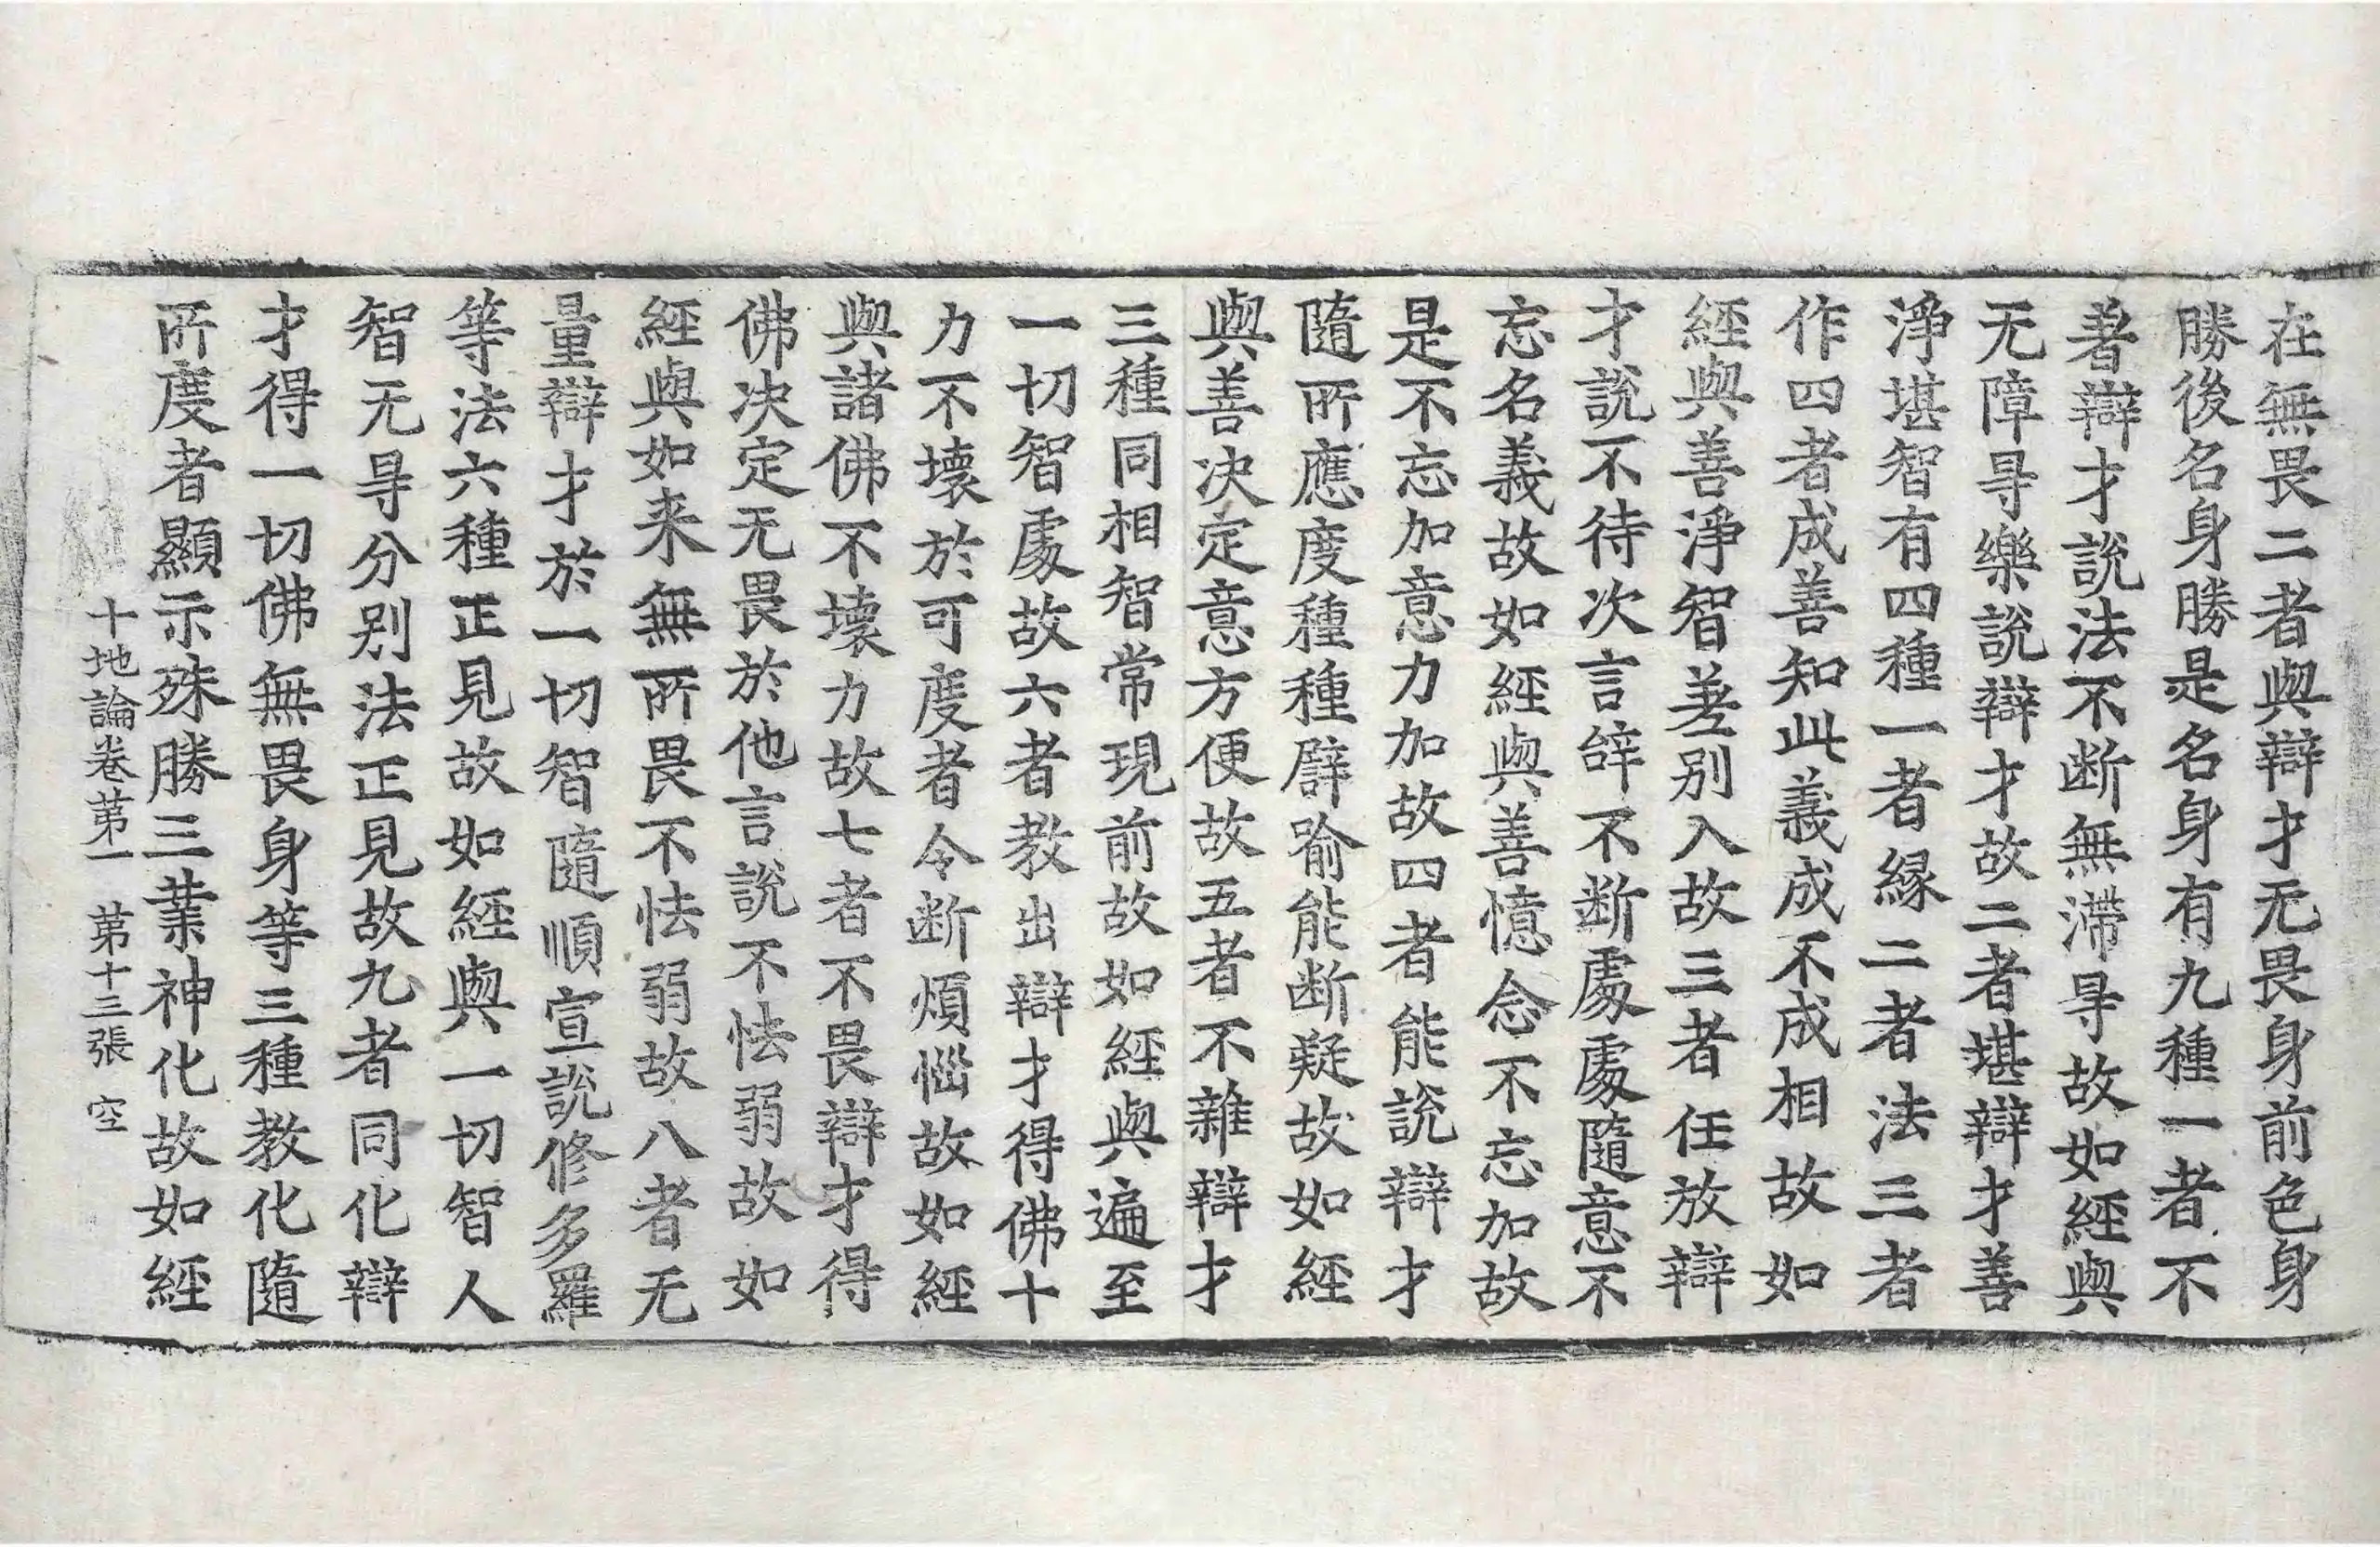 在無畏二者與辯才无畏身前色身
勝後名身勝是名身有九種一者不
著辯才說法不断無滯㝵故如經與
无障㝵樂說辯才故二者堪辯才善
淨堪智有四種一者縁二者法三者
作四者成善知此義成不成相故如
經與善淨智差别入故三者任放辯
才說不待次言辝不断處處隨意不
忘名義故如經與善憶念不忘加故
是不忘加意力加故四者能說辯才
隨所應度種種譬喻能断疑故如經
與善决定意方便故五者不雜辯才
三種同相智常現前故如經與遍至
一切智處故六者教出辯才得佛十
力不壞於可度者令断煩惱故如經
與諸佛不壞力故七者不畏辯才得
佛决定无畏於他言說不怯弱故如
經與如来無所畏不怯弱故八者无
量辯才於一切智隨順宣說修多羅
等法六種正見故如經與一切智人
智无㝵分别法正見故九者同化辯
才得一切佛無畏身等三種教化隨
所度者顯示殊勝三業神化故如經
十地論卷苐一 苐十三張 空